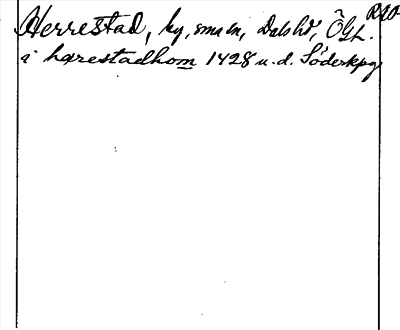 RAO
Herrestad, by, sm sn, Dals hd, ÖGL.
i hærestadhom 1428 u.d. Söderkpg